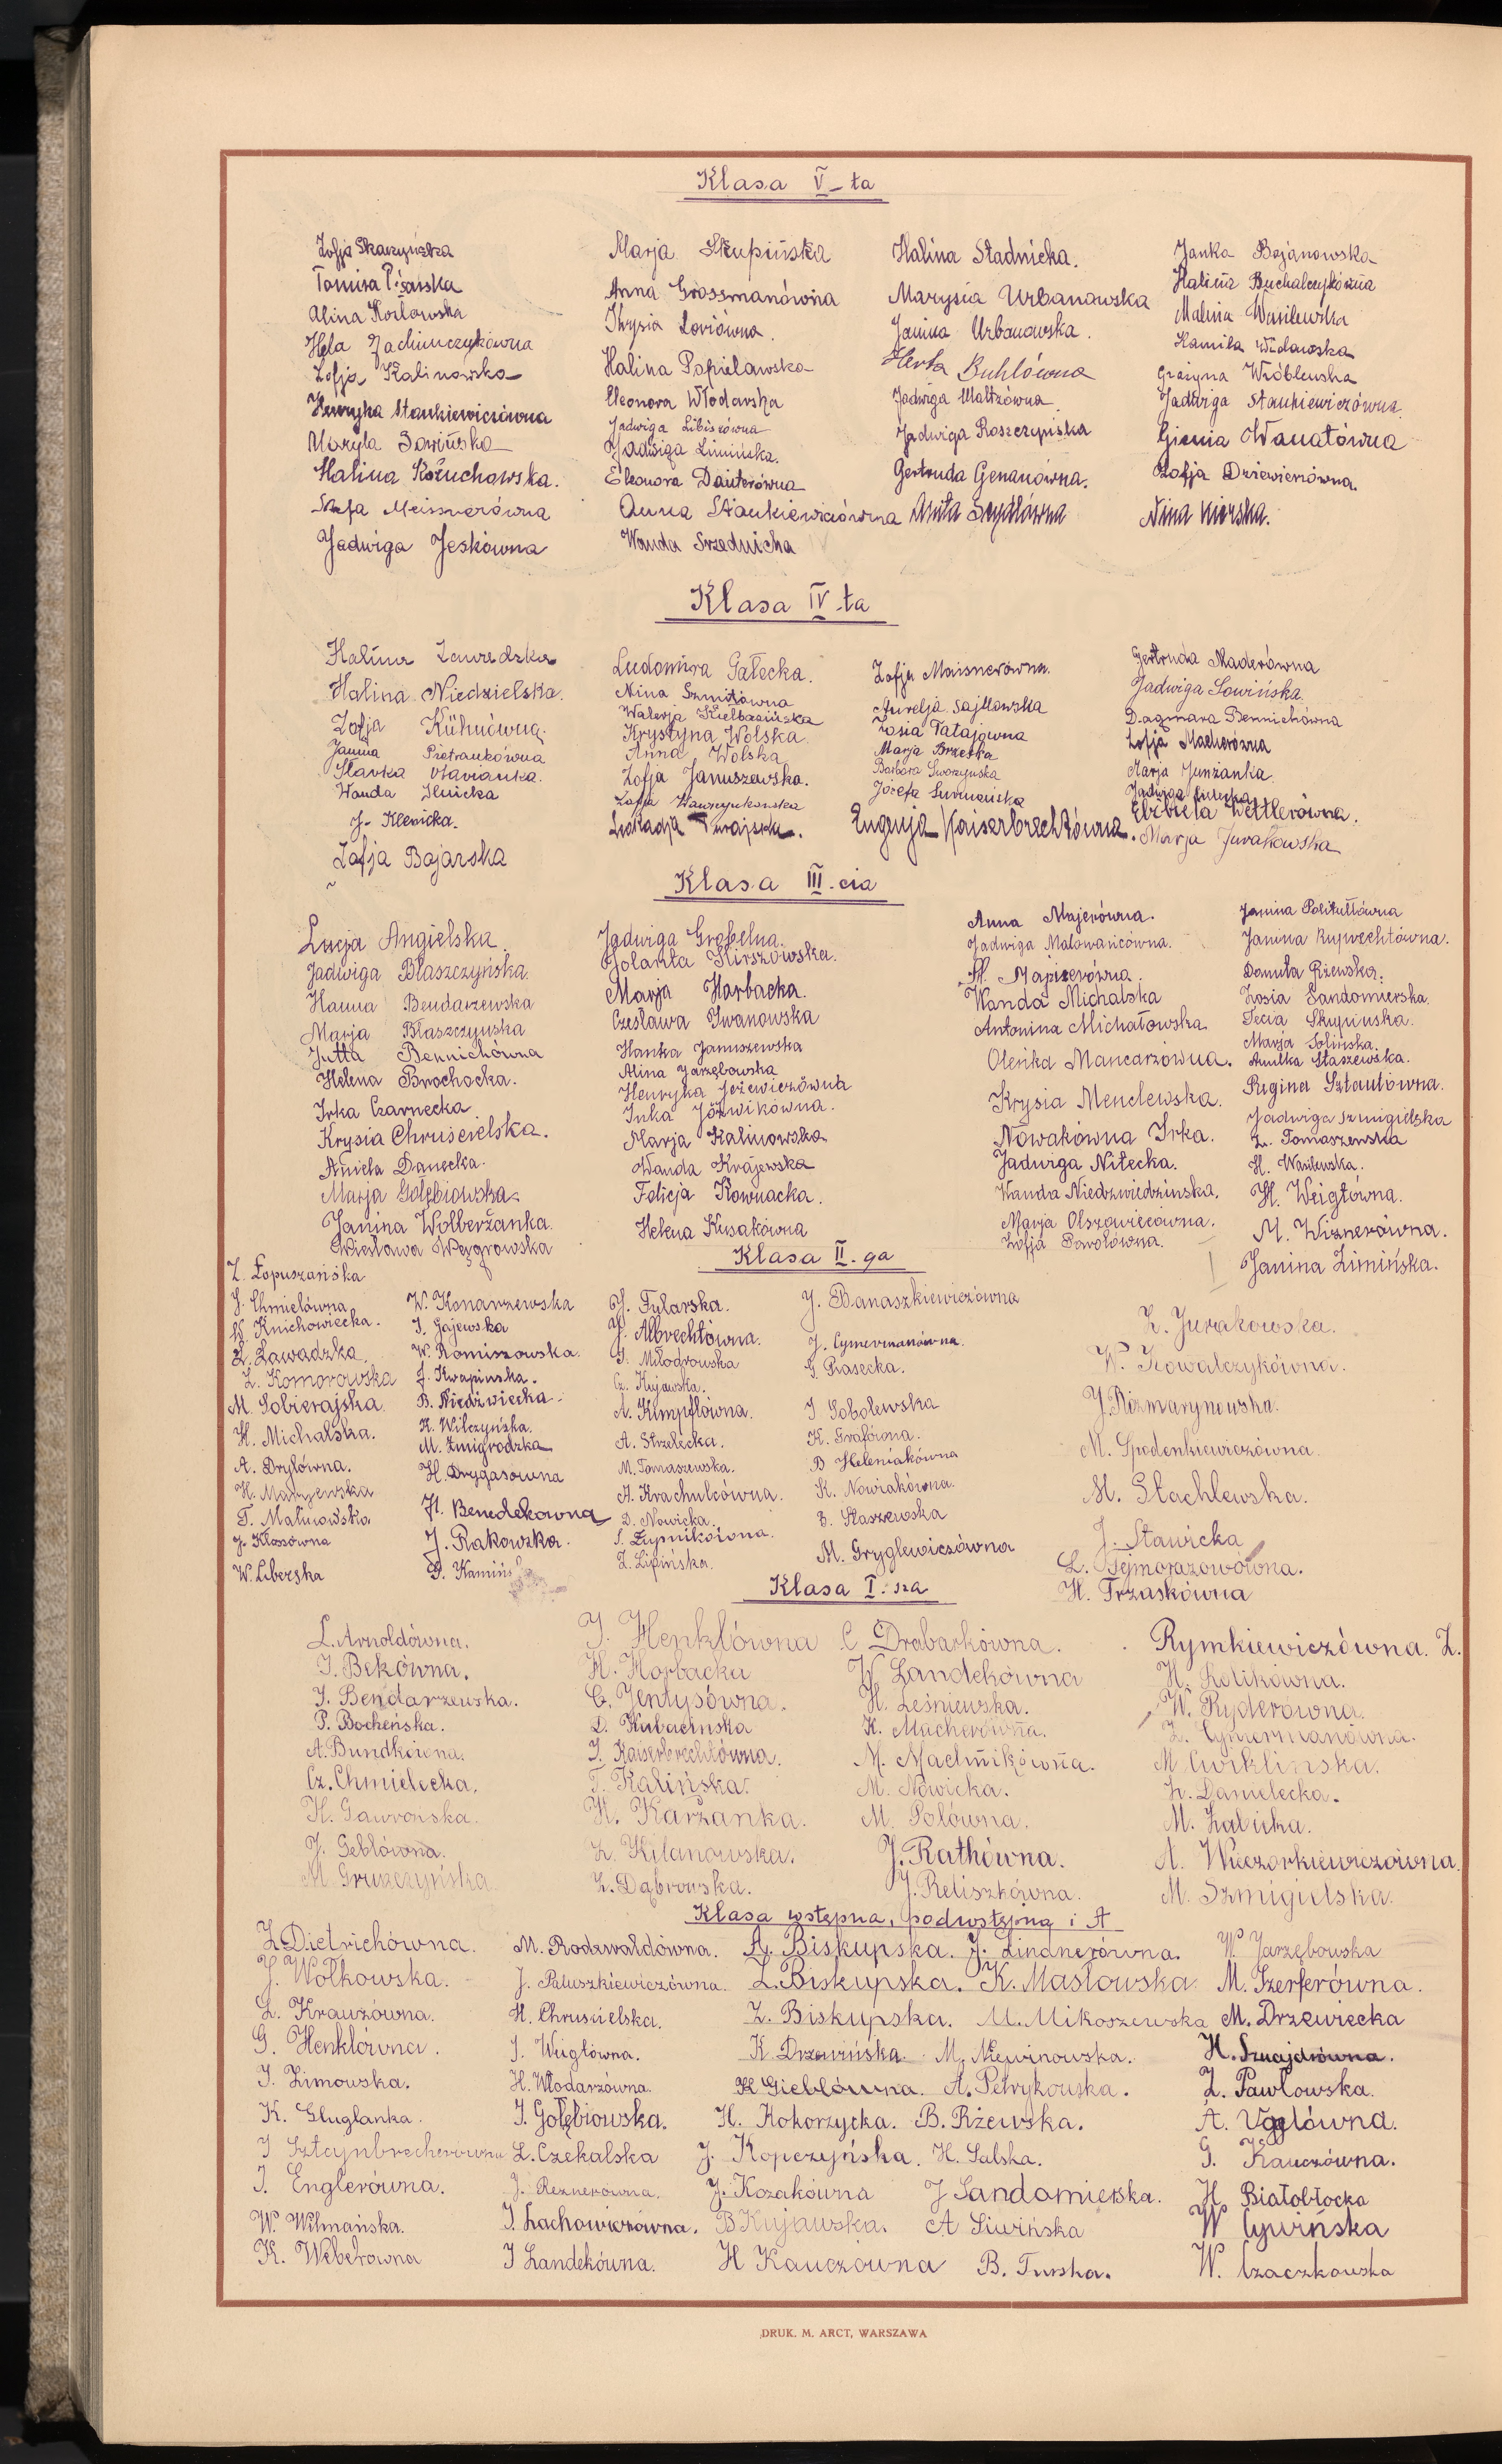 Klasa V-ta
Zofja Skarzyńska
Tomira Pisarska
Alina Kozłowska
Hela Jachimczykówna
Zofja Kalinowska
Henryka Stankiewiczówna
Maryla Sowińska
Halina Kożuchowska.
Stefa Meissnerówna
Jadwiga Jeskówna
Marja Skupińska
Anna Grossmanówna
Krysia Loriówna.
Halina Papielawska
Eleonora Włodarska
Jadwiga Libiszówna
Jadwiga Zimińska.
Eleonora Dauterówna
Anna Stankiewiczówna
Wanda Srzednicka
Halina Stadnicka.
Marysia Urbanowska
Janina Urbanowska.
Herta Buhlówna
Jadwiga Maltzówna
Jadwiga Roszczypiska
Gertruda Genanówna.
Anita Seydlówna
Janka Bojanowska
Halina Buchalczykówna
Malina Wasilewska
Kamila Widawska
Grażyna Wróblewska
Jadwiga Stankiewiczówna.
Gienia Wanatówna
Zofja Drzewieniówna.
Nina Kierska.
Klasa IV-ta
Halina Zawadzka
Halina Niedzielska.
Zofja Kühnówna.
Janina Pietrankówna
Sławka
Wanda Ilnicka
J. Klenicka.
Zofja Bojarska
Ludomira Gałecka.
Nina Szmitówna
Walerja Kiełbasińska
Krystyna Wolska
Anna Wolska
Zofja Januszewska.
Zofja Wawrzynkowska
Leokadja Turajska.
Zofja Maisnerówna.
Aurelja Sajkowska
Zosia Tatajówna
Marja Brzeska
Barbara Sworzyńska
Józefa Surmańska
Eugenja Kaiserbrechtówna.
Gertruda Maderówna
Jadwiga Sowińska.
Dagmara Bennichówna
Zofja Macherówna
Marja Junżanka
Jadwiga
Elżbieta Wettlerówna.
Marja Jurakowska
Klasa III-cia
Łucja Angielska.
Jadwiga Błaszczyńska.
Hanna Bendarzewska
Marja Błaszczyńska
Jutta Bennichówna
Helena Brochocka.
Irka Czarnecka
Krysia Chruścielska.
Aniela Danecka.
Marja Gołębiowska
Janina Wolberżanka.
Wiesława Węgrowska
Jadwiga Grobelna.
Jolanta Hirszowska.
Marja Harbacka.
Czesława Iwanowska
Hanka Januszewska
Alina Jarzębowska
Henryka Jeżewiczówna
Inka Jóźwikówna.
Marja Kalinowska
Wanda Krajewska
Felicja Kownacka.
Helena Kusakówna
Anna Majerówna.
Jadwiga Malowańcówna.
H. Majzerówna.
Wanda Michalska
Antonina Michałowska
Oleńka Mancarzówna.
Krysia Menclewska.
Nowakówna Irka.
Jadwiga Nitecka.
Wanda Niedźwiedzińska.
Marja Olszowiecówna.
Zofja Pawołówna.
Janina Polikułtówna
Janina Ruprechtówna.
Danuta Rżewska.
Zosia Sandomierska.
Tecia Skupińska.
Marja Solińska.
Anulka Staszewska.
Regina Sztautówna.
Jadwiga Szmigielska
Z. Tomaszewska
H. Wasilewska.
H. Weigtówna.
M. Wiznerówna.
Janina Zimińska.
Klasa II-ga
Z. Łopuszańska
J. Chmielówna
W. Knichowiecka.
Z. Zawadzka.
Z. Komorowska
M. Sobierajska
H. Michalska.
A. Drylówna.
H. Maryjewska
T. Malinowska
J. Klossówna
W. Liberska
W. Konarzewska
I. Gajewska
W. Romiszowska.
J. Kwapińska.
B. Niedźwiecka.
K. Wilczyńska.
M. Żmigrodzka
H. Drygasówna
H. Benedekówna
J. Rakowska.
G. Kamińs
J. Fularska.
J. Albrechtówna.
I. Miłodrowska
Cz. Kujawska.
A. Kimpflówna.
A. Strzelecka.
M. Tomaszewska.
A. Krachulcówna.
D. Nowicka.
S. Żupnikówna.
Z. Lipińska.
J. Banaszkiewiczówna
J. Cymermanówna.
G. Piasecka.
I. Sobolewska
K. Grafówna.
B. Heleniakówna
K. Nowiakówna.
E. Staszewska
M. Gryglewiczówna
Z. Jurakowska.
W. Kowalczykówna.
J. Rozmarynowska.
M. Spodenkiewiczówna.
M. Stachlewska.
J. Stawicka
L. Tejmorazowówna.
H. Trzaskówna
Klasa I-sza
L. Arnoldówna.
I. Bekówna.
I. Bendarzewska.
P. Bocheńska.
A. Bundkówna.
Cz. Chmielecka.
H. Gawrońska.
J. Geblówna.
M. Gruszczyńska
I. Henklówna
H. Horbacka
C. Jentysówna.
D. Kubacińska
I. Kaiserbrechtówna.
T. Kalińska.
H. Karżanka.
Z. Kilanowska.
Z. Dąbrowska.
C. Drabarkówna.
W. Landekówna
H. Leśniewska.
K. Macherówna.
M. Machnikówna.
M. Nowicka.
M. Polówna.
J. Rathówna.
J. Reliszkówna.
Rymkiewiczówna. Z.
H. Rolikówna.
W. Ryderówna.
Z. Cymermanówna.
M Ćwiklińska.
Z. Danielecka.
M. Zalicka.
A. Wieczorkiewiczówna.
M. Szmigielska.
Klasa wstępna, podwstępna i A
Z. Dietrichówna. M. Rodzwałdówna. A. Biskupska. J. Lindnerówna. W. Jarzębowska
J. Wołkowska. J. Pałuszkiewiczówna. Z. Biskupska. K. Masłowska. M. Szerferówna.
L. Krauzówna. H. Chruścielska. Z. Biskupska. M. Mikoszewska M. Drzewiecka
G. Henklówna. J. Wugłówna. K. Drzewińska. M. Niewinowska. H. Sznajdrówna.
I. Zimowska. H. Włodarzówna. K Gieblówna. A. Petrykowska. Z. Pawłowska.
K. Gluglanka. I. Gołębiowska. H. Kokorzycka. B. Rżewska. A. Voglówna.
I Sztejnbrecherówna L. Czekalska J. Kopczyńska. H. Salska. G. Kauczówna.
I. Englerówna. J. Reznerówna. J. Kozakówna J Sandomierska. H Białobłocka
W. Wilmańska. I. Lachowiczówna. B Kujawska. A Siwińska W Cywińska
K. Weberówna I Landekówna. H Kauczówna B. Turska. W. Czaczkowska
DRUK. M. ARCT, WARSZAWA